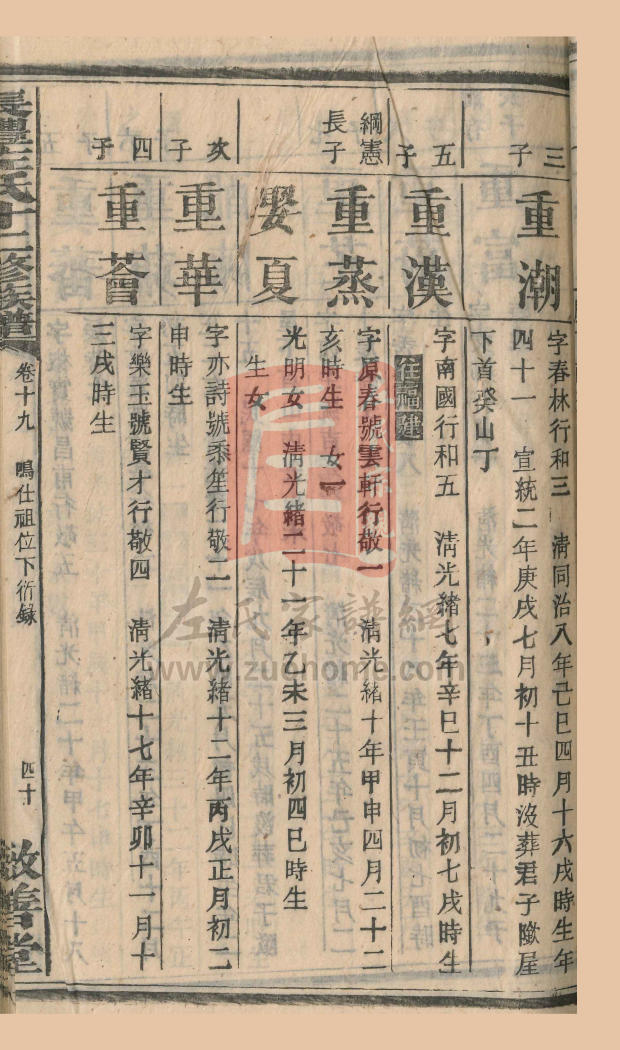 三子
重潮
字春林行和三 清同治八年己巳四月十六戌時生年
四十一 宣統二年庚戌七月初十丑時沒葬君子隞屋
下首癸山丁
五子
重漢
字南國行和五 清光緒七年辛巳十二月初七戌時生
住福建
綱憲長子
重蒸
字原春號雲軒行敬一 清光緒十年甲申四月二十二
亥時生 女一
娶夏
光明女 清光緒二十一年乙未三月初四巳時生
生女
次子
重華
字亦詩號黍笙行敬二 清光緒十二年丙戌正月初二
申時生
四子
重薈
字樂玉號賢才行敬四 清光緒十七年辛卯十一月十
三戌時生
左氏十二修族譜
卷十九 鳴仕祖位下衍錄
四十
敬善堂
左氏家譜網
www.zuohome.com